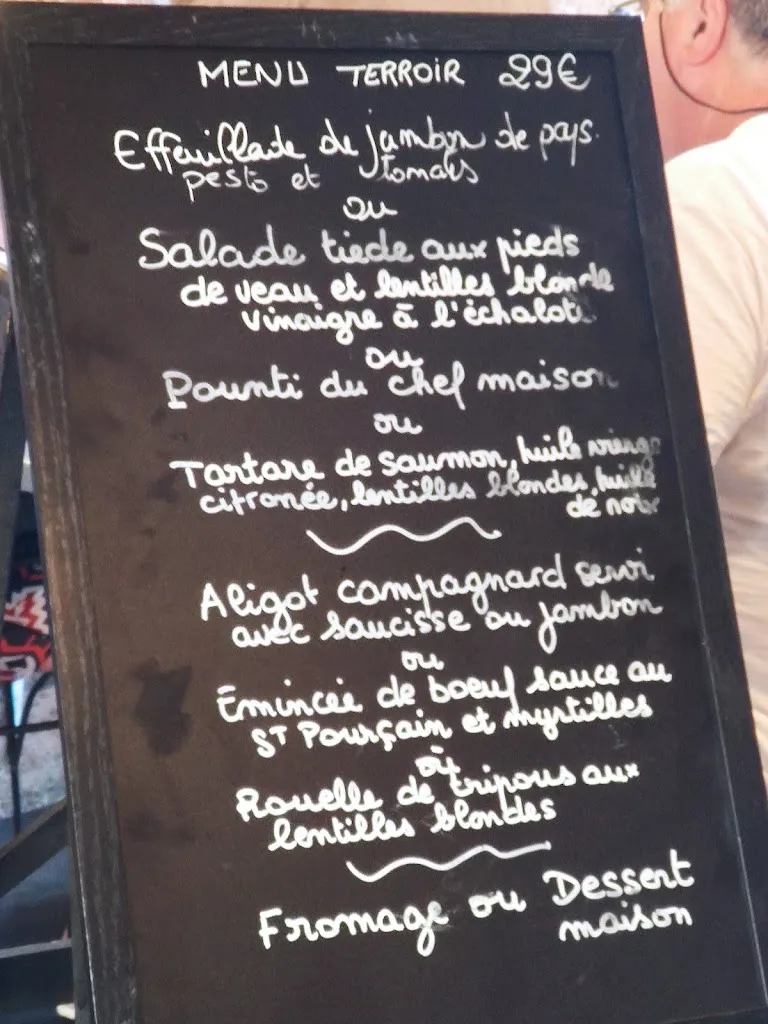 MENU TERROIR 29€
Effeuillade de jambon de pays
pesto et tomates
ou
Salade tiede aux pieds
de veau et lentilles blonde
vinaigre à l'échalote
ou
Pounti du chef maison
ou
Tartare de saumon, huile vierge
citronée, lentilles blondes, huile
de noix
Aligot campagnard servi
avec saucisse ou jambon
ou
Émincée de boeuf sauce au
ST Pourçain et myrtilles
ou
Rouelle de tripous aux
lentilles blondes
Fromage ou Dessert
maison